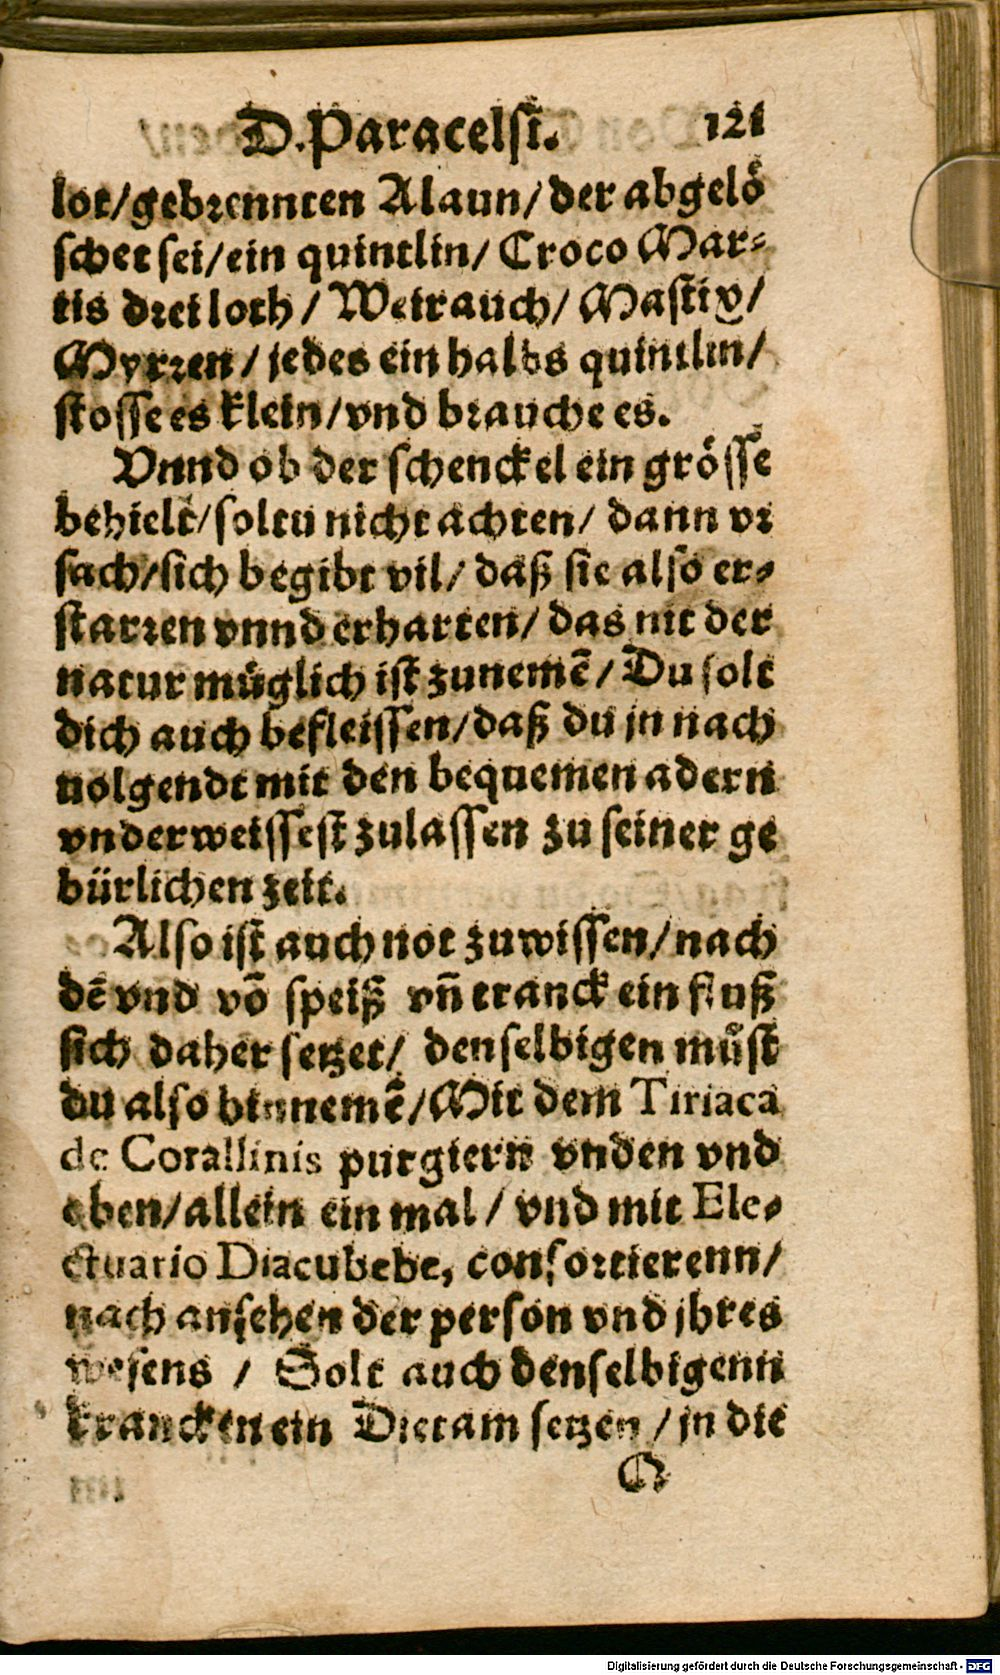 D. Paracelsi. 121
lot/gebrennten Alaun/der abgelö
schet sei/ein quintlin/ Croco Mar-
tis drei loth / Weirauch/ Mastix/
Myrren / jedes ein halbs quintlin/
stosse es klein/vnd brauche es.
Vnnd ob der schenckel ein grösse
behielt/soltu nicht achten/ dann vr
sach/sich begibt vil/ daß sie also er-
starren vnnd erharten/ das nit der
natur müglich ist zunemē/ Du solt
dich auch befleissen/daß du jn nach
uolgendt mit den bequemen adern
vnderweissest zulassen zu seiner ge
bürlichen zeit.
Also ist auch not zuwissen/nach
dē vnd vō speiß vñ tranck ein fluß
sich daher setzet/ denselbigen můst
du also hinnemē/Mit dem Tiriaca
de Corallinis purgiern vnden vnd
oben/allein ein mal / vnd mit Ele-
ctuario Diacubebe, confortierenn/
nach ansehen der person vnd jhres
wesens / Solt auch denselbigenn
krancken ein Dietam setzen / jn die
Q
Digitalisierung gefördert durch die Deutsche Forschungsgemeinschaft - DFG